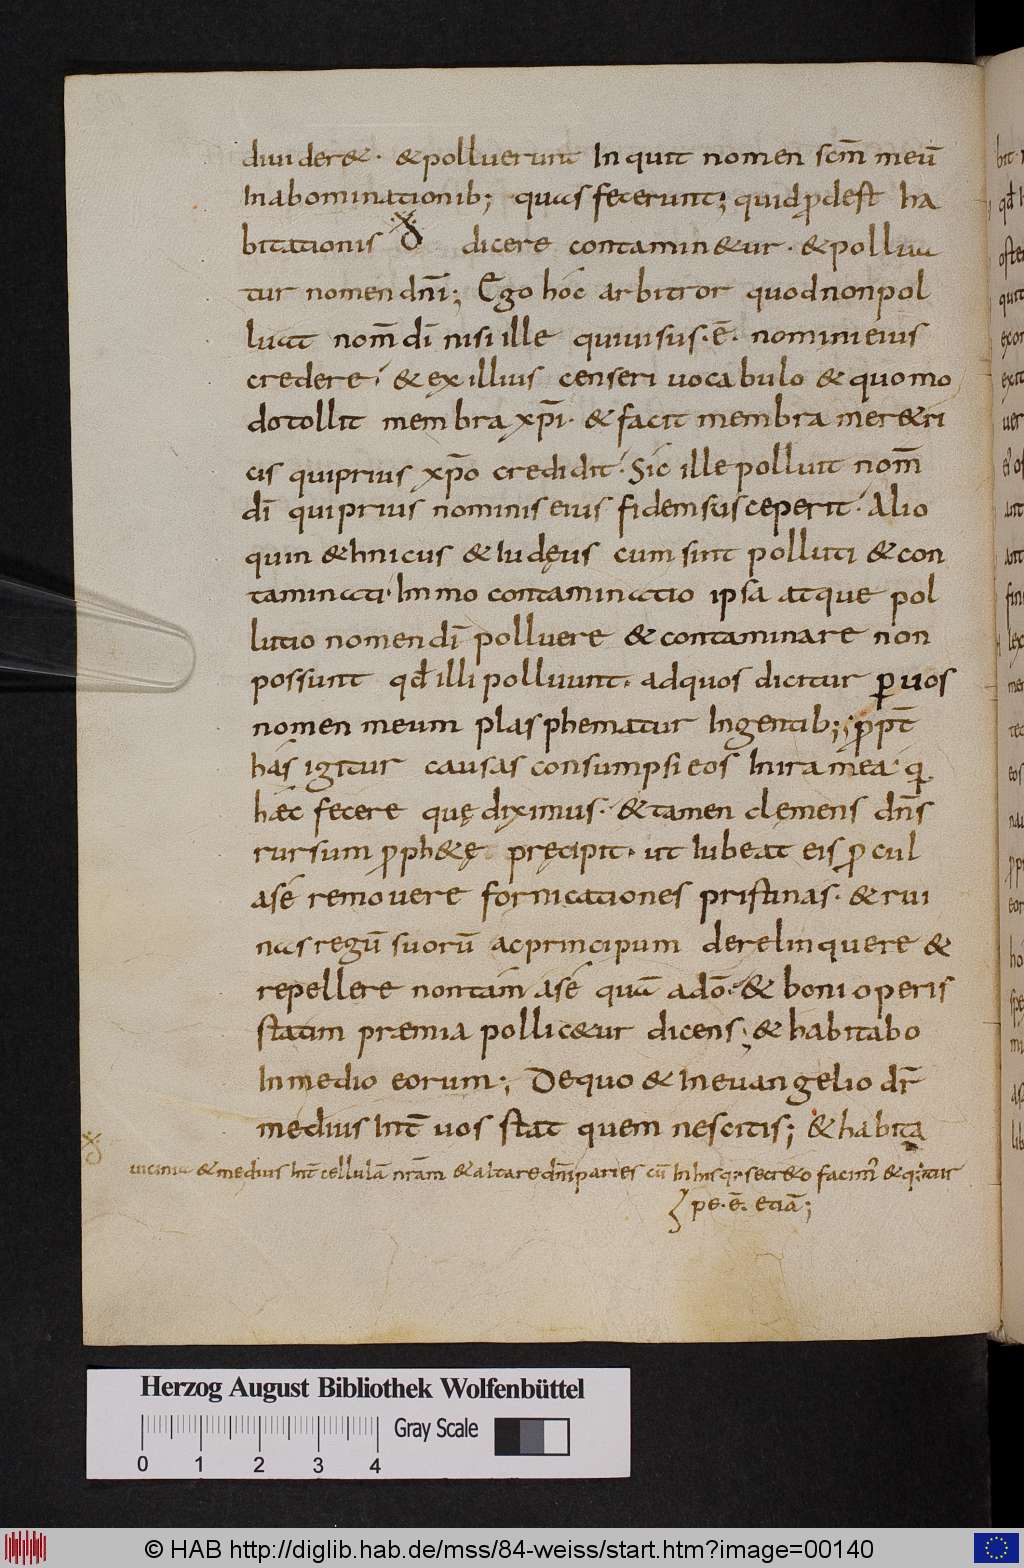 diuider&. & polluerunt Inquit nomen scm̅ meu̅
Inabominationib; quas fecerunt; quid ꝓdest ha
bitationis dicere contamin&ur. & pollua
tur nomen dn̅i; Ego hoc arbitror quod non pol
luat nom̅ di̅ nisi ille quiuisus. e̅. nomini eius
credere. & ex illius censeri uocabulo & quomo
do tollit membra xp̅i. & facit membra mer&ri
cis quiprius xp̅o credidit. Sic ille polluit nom̅
di̅ quiprius nominis eius fidem susceperit. Alio
quin &hnicus & Iudęus cum sint polluti & con
taminati. Immo contaminatio ipsa atque pol
lutio nomen di̅ polluere & contaminare non
possunt qđ illi polluunt. adquos dicitur ꝑ uos
nomen meum plasphematur Ingentib; ꝓpt̅
has igitur causas consumpsi eos Inira mea. q
hæc fecere quę diximus. & tamen clęmens dn̅s
rursum ꝓph&ę pręcipit. ut Iubeat eis ꝓcul
ase remouere fornicationes pristinas. & rui
nas regu̅ suoru̅ ac principum derelinquere &
repellere nontam ase qua̅ ado̅. & boni operis
statim præmia pollic&ur dicens; & habitabo
Inmedio eorum; Dequo & Ineuangelio dr̅
medius Int̅ uos stat quem nescitis; & habita
uicinia & medius Int̅ cellula̅ nr̅am & altare dn̅i paries cu̅ In his q; secr&o facim' & q;
pe. e̅. etia̅;
Herzog August Bibliothek Wolfenbüttel
Gray Scale
0 1 2 3 4
© HAB http://diglib.hab.de/mss/84-weiss/start.htm?image=00140